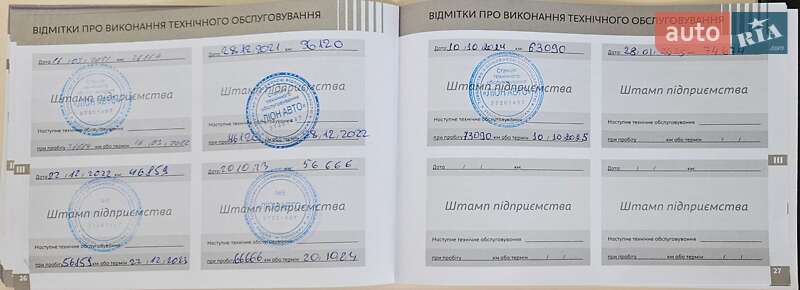 ВІДМІТКИ ПРО ВИКОНАННЯ ТЕХНІЧНОГО ОБСЛУГОВУВАННЯ
Дата км
Штамп підприємства
Наступне технічне обслуговування
при пробігу км або термін
Дата 28.12.2021 км 36120
Штамп підприємства
«ЛІОН АВТО»
Наступне технічне обслуговування
при пробігу км або термін 28.12.2022
Дата 27.12.2022 км 46859
Штамп підприємства
Наступне технічне обслуговування
при пробігу 56859 км або термін 27.12.2023
Дата км 56666
Штамп підприємства
Наступне технічне обслуговування
при пробігу 66666 км або термін 20.10.24
III
26
ВІДМІТКИ ПРО ВИКОНАННЯ ТЕХНІЧНОГО ОБСЛУГОВУВАННЯ
Дата 10.10.2024 км 63090
Штамп підприємства
Станція
технічного
обслуговування
«ЛІОН АВТО»
Наступне технічне обслуговування
при пробігу 73090 км або термін 10.10.2025
Дата км
Штамп підприємства
Наступне технічне обслуговування
при пробігу км або термін / /
Дата / / км
Штамп підприємства
Наступне технічне обслуговування
при пробігу км або термін / /
Дата / / км
Штамп підприємства
Наступне технічне обслуговування
при пробігу км або термін / /
III
27
auto RIA.com